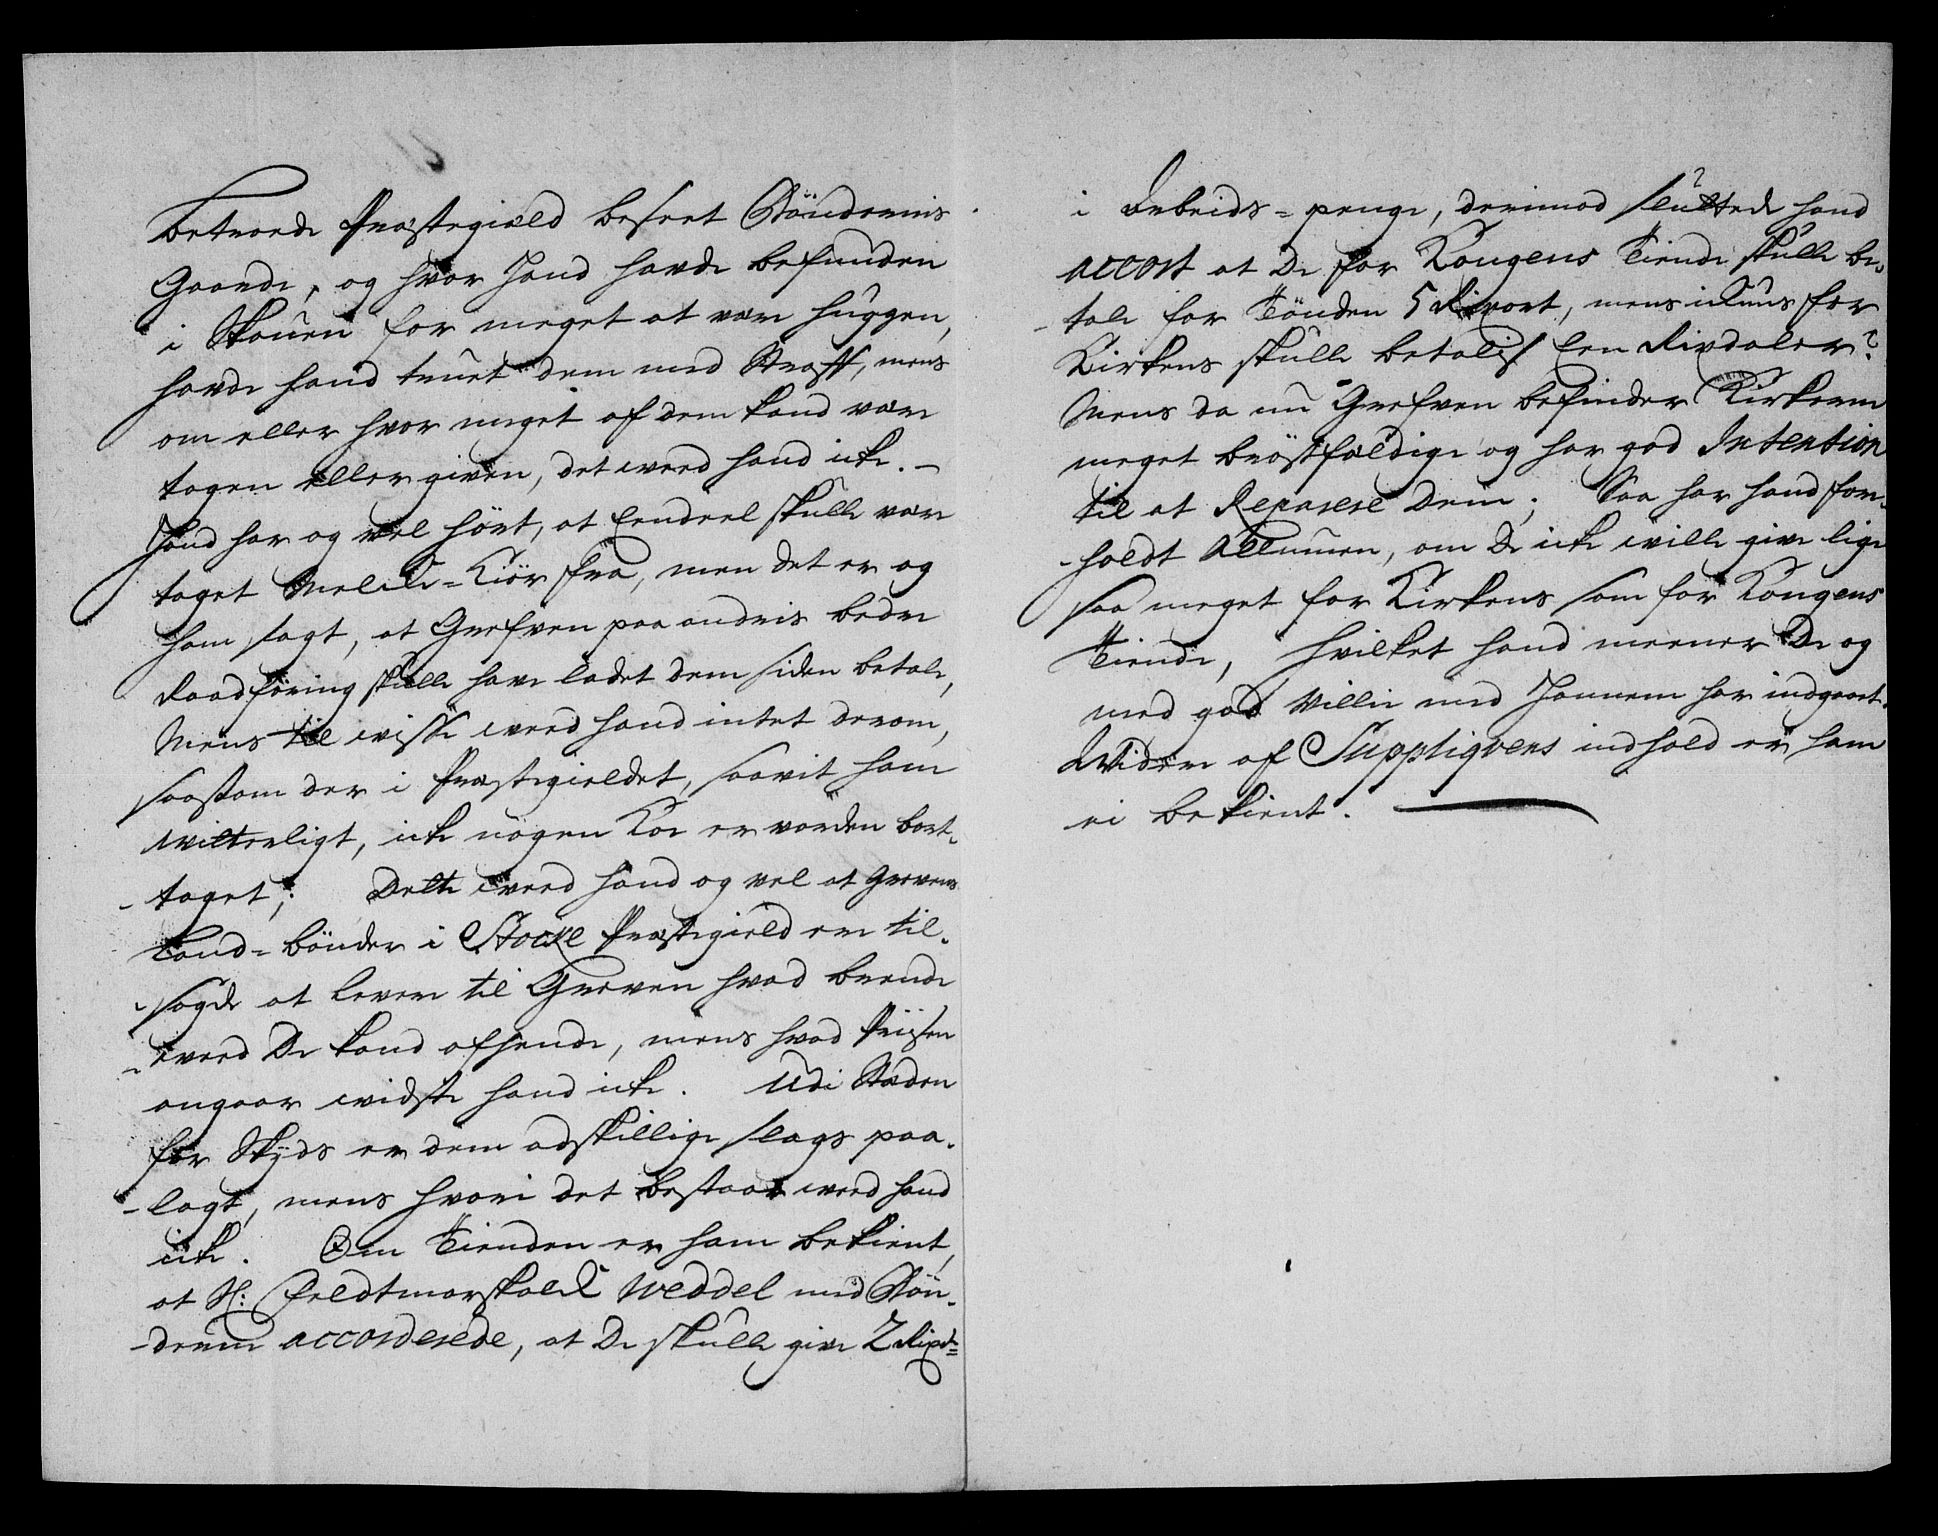 betroede Præstegield beseet Böndernis
Gaarde, og hvor Hand hafde befunden
i Skouen for meget at vær huggen,
hafde hand truet dem med Straff, mens
om eller hvor meget af dem kand vær
tagen eller given, det weed hand icke. –
Hand har og vel hört, at Eendeel skulle vær
taget Melcke-Kiör fra, men det er og
ham sagt, at Grefven paa andris bedre
Raadföring skulle hafve ladet dem siden betale,
Mens til wisse weed hand intet derom,
saasom der i Præstegieldet, saavit ham
witterligt, icke nogen Koe er vorden bort-
taget; Dette weed hand og vel at Grevens
Land-bönder i Stocke Præstegield ere til-
sagde at levere til Greven hvad brende
weed De kand afhende, mens hvad Priisen
angaar widste hand icke. Udi Steden
for Skyds er dem adskillige slags paa-
lagt, mens hvori det bestaar weed hand
icke. Om Tienden er ham bekient,
at H: Feldtmarskalck Weddel med Bön-
derne accorderede, at De skulle give 2 Rixd=
i Arbeids-penge, derimod sluttede hand
accort at De for Kongens Tiende skulle be-
tale for Tönden 5 Rixort, mens ickuns for
Kirkens skulle betalis Een Rixdaler?
Mens da nu Grefven befinder Kirkerne
meget bröstfeldige og har god Intention
til at Reparere Dem; Saa har hand for-
holdt Allmuen, om De icke wille give lige
saa meget for Kirkens som for Kongens
Tiende, hvilket hand meener De og
med god Villie med Hannem har indgaaet.
Widere af Suppliqvens indhold er ham
ei bekient.